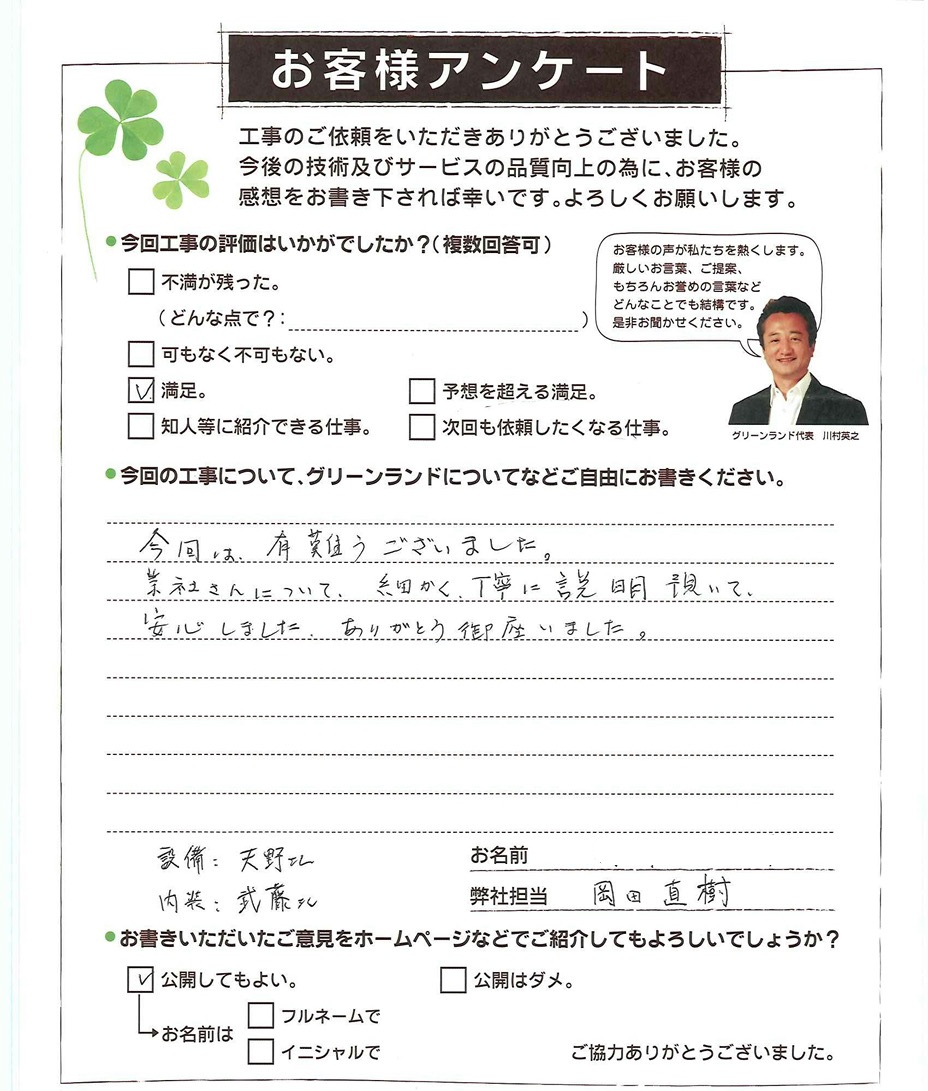 お客様アンケート
工事のご依頼をいただきありがとうございました。
今後の技術及びサービスの品質向上の為に、お客様の
感想をお書き下されば幸いです。よろしくお願いします。
●今回工事の評価はいかがでしたか？（複数回答可）
お客様の声が私たちを熱くします。
厳しいお言葉、ご提案、
もちろんお誉めの言葉など
どんなことでも結構です。
是非お聞かせください。
グリーンランド代表 川村英之
□ 不満が残った。
（どんな点で？： ）
□ 可もなく不可もない。
☑ 満足。 □ 予想を超える満足。
□ 知人等に紹介できる仕事。 □ 次回も依頼したくなる仕事。
●今回の工事について、グリーンランドについてなどご自由にお書きください。
今回は、有難うございました。
業社さんについて、細かく、丁寧に説明頂いて、
安心しました、ありがとう御座いました。
設備：天野さん お名前
内装：武藤さん 弊社担当 岡田直樹
●お書きいただいたご意見をホームページなどでご紹介してもよろしいでしょうか？
☑ 公開してもよい。 □ 公開はダメ。
→お名前は □ フルネームで
□ イニシャルで ご協力ありがとうございました。